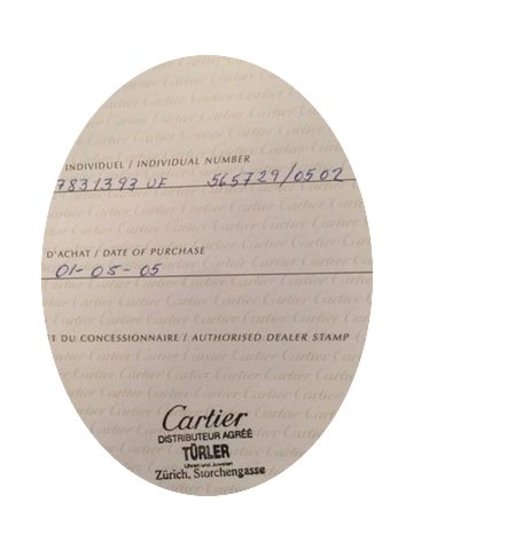 INDIVIDUEL / INDIVIDUAL NUMBER
7831393 UF 565729/0502
D'ACHAT / DATE OF PURCHASE
01-05-05
T DU CONCESSIONNAIRE / AUTHORISED DEALER STAMP
Cartier
DISTRIBUTEUR AGRÉÉ
TÜRLER
Uhren und Juwelen
Zürich, Storchengasse